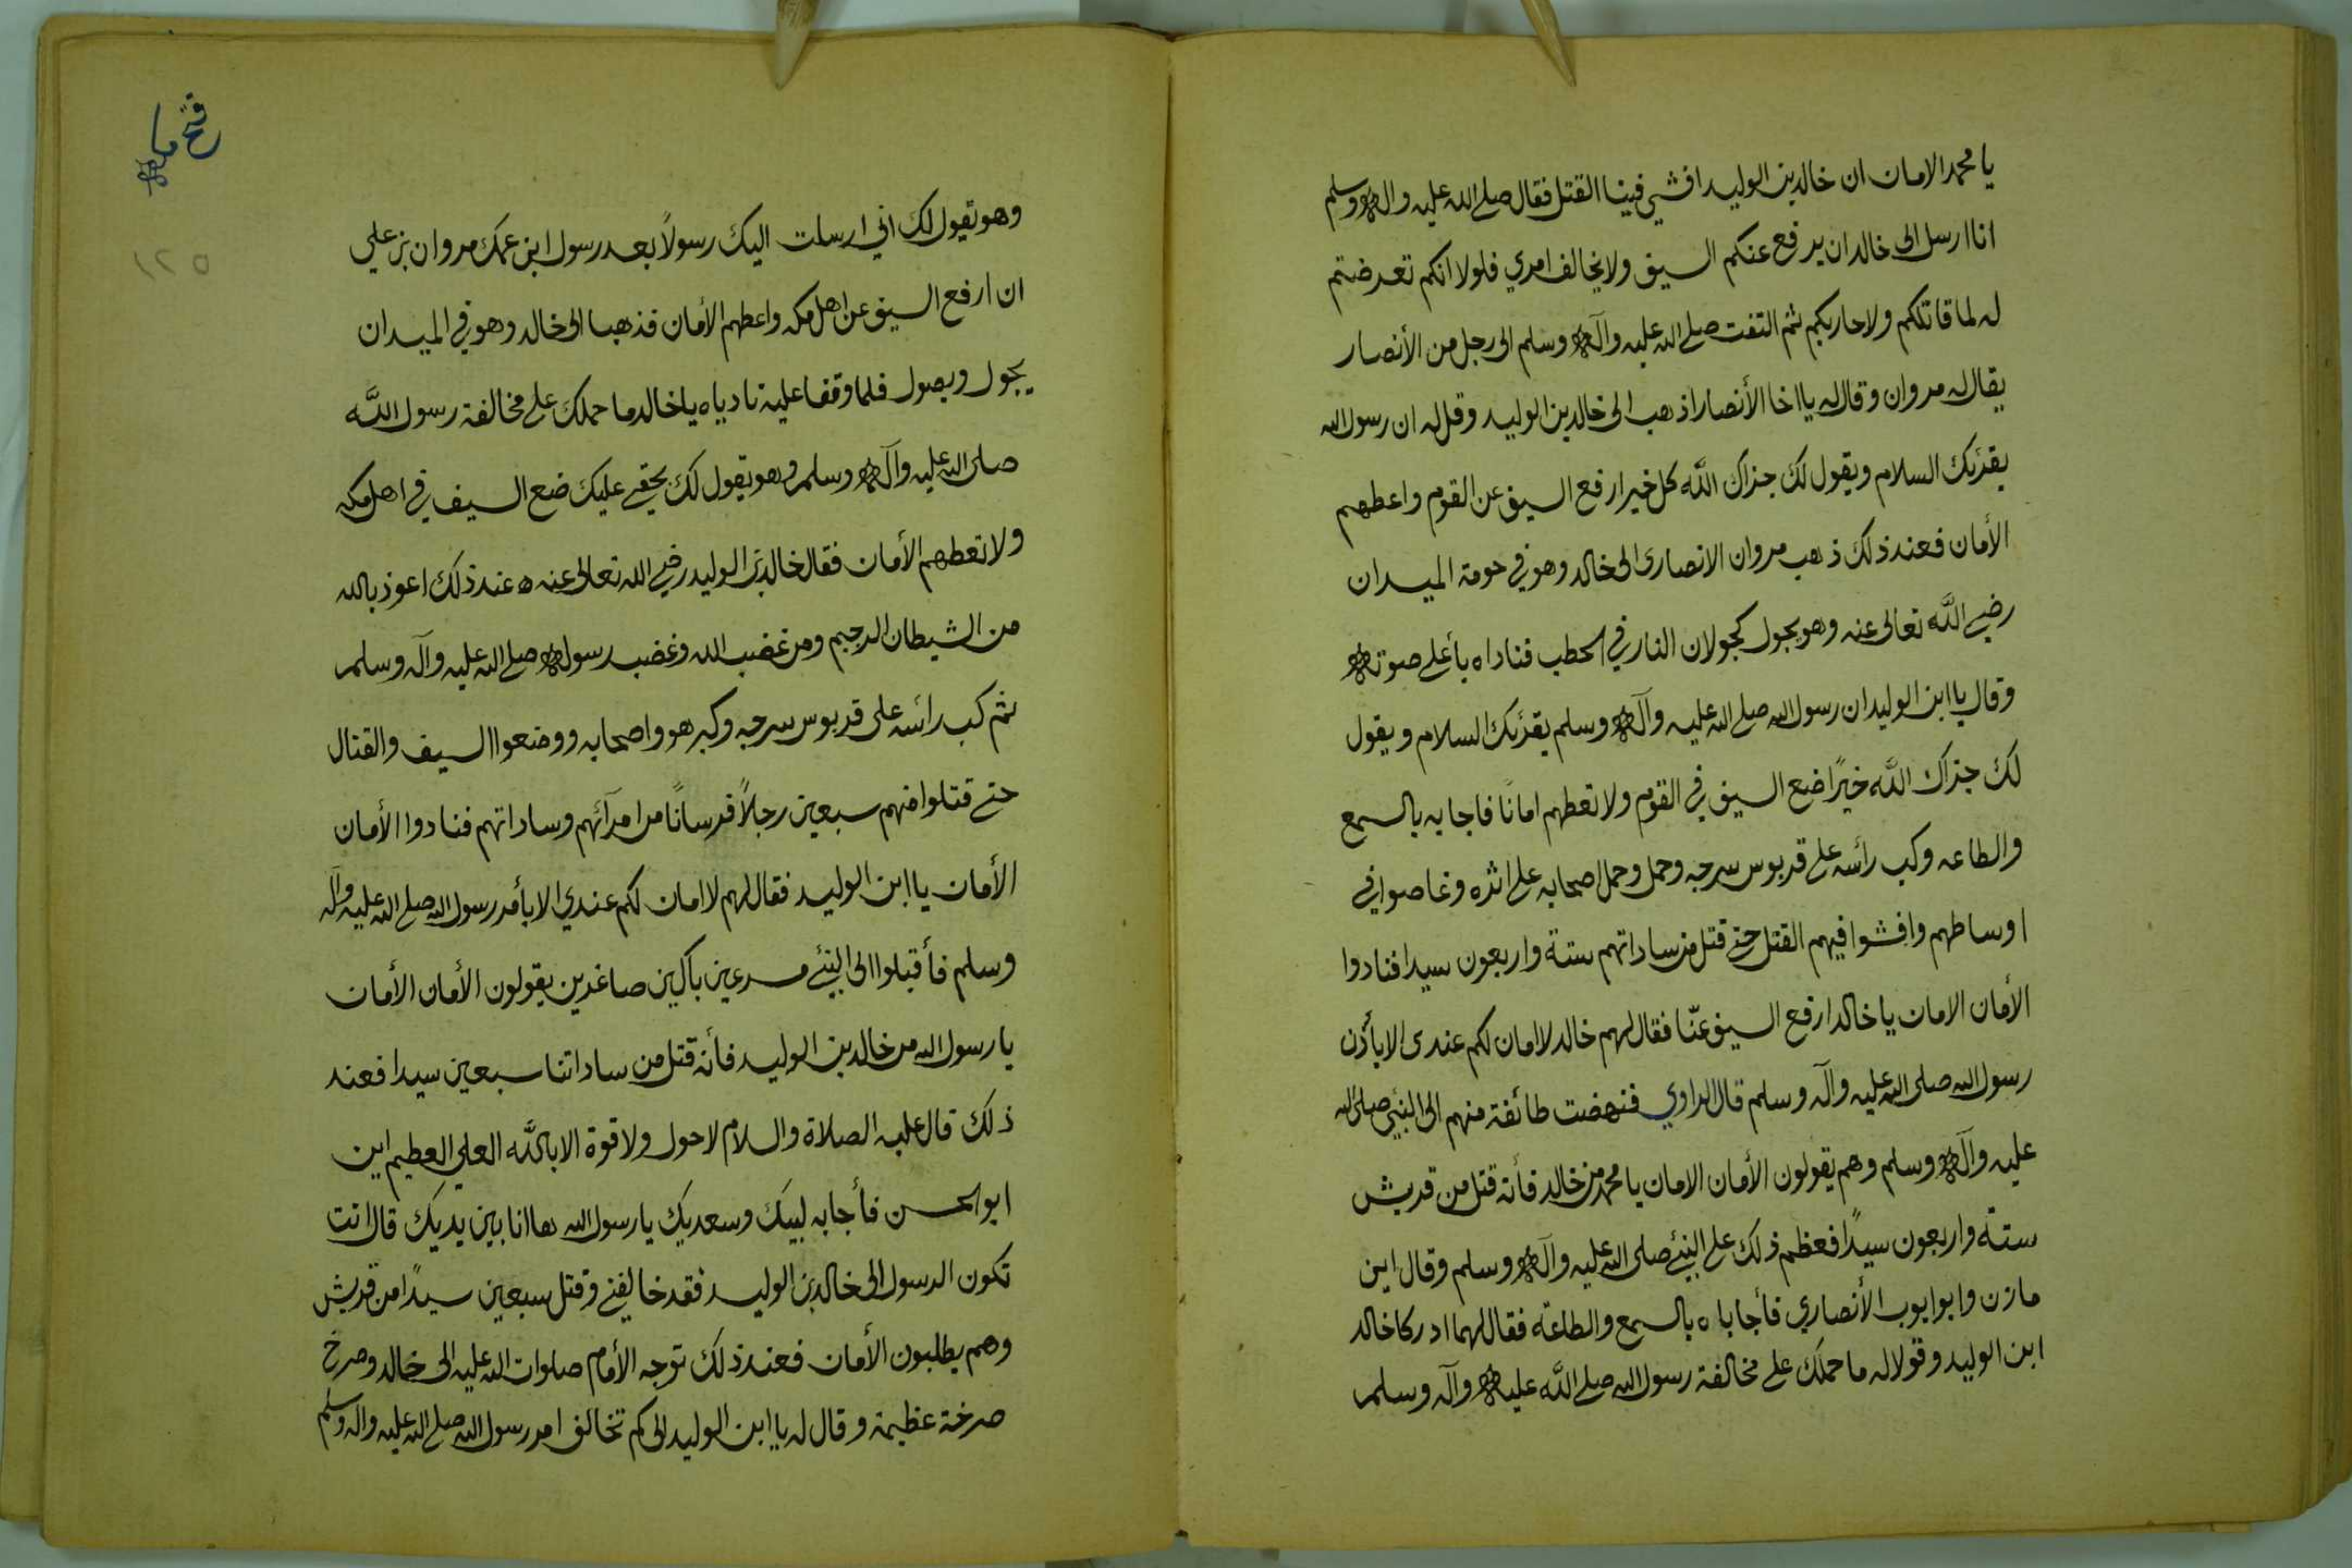 يا محمد الامان ان خالد بن الوليد افشي فينا القتل فقال صلى الله عليه واله وسلم
انا ارسل الى خالد ان يرفع عنكم السيف ولا يخالف امري فلولا انكم تعرضتم
له لما قاتلكم ولا حاربكم ثم التفت صلى الله عليه وآله وسلم الى رجل من الأنصار
يقال له مروان وقال له يا اخا الأنصار اذهب الى خالد بن الوليد وقل له ان رسول الله
يقرئك السلام ويقول لك جزاك اللّٰه كل خير ارفع السيف عن القوم واعطهم
الأمان فعند ذلك ذهب مروان الانصارى الى خالد وهو في حومة الميدان
رضي اللّٰه تعالى عنه وهو يجول كجولان النار في الحطب فناداه بأعلى صوته
وقال يا ابن الوليد ان رسول الله صلى الله عليه وآله وسلم يقرئك السلام ويقول
لك جزاك اللّٰه خيرًا ضع السيف في القوم ولا تعطهم امانًا فاجابه بالسمع
والطاعه وكب رائسه على قربوس سرجه وحمل وحمل اصحابه على اثره وغاصوا في
اوساطهم وافشوا فيهم القتل حتى قتل من ساداتهم ستة واربعون سيدا فنادوا
الأمان الامان يا خالد ارفع السيف عنّا فقال لهم خالد لا امان لكم عندى الا بأذن
رسول الله صلى الله عليه وآله وسلم قال الراوي فنهضت طائفة منهم الى النبئ صلى الله
عليه وآله وسلم وهم يقولون الأمان الامان يا محمد من خالد فأنه قتل من قريش
ستة واربعون سيدًا فعظم ذلك على النبئ صلى الله عليه وآله وسلم وقال اين
مازن وابو ايوب الأنصاري فأجاباه بالسمع والطاعة فقال لهما ادركا خالد
ابن الوليد وقولا له ما حملك على مخالفة رسول الله صلى اللّٰه عليه وآله وسلم
فتح مكه
١٢٥
وهو يقول لك اني ارسلت اليك رسولاً بعد رسول ابن عمك مروان بن علي
ان ارفع السيف عن اهل مكه واعطهم الأمان فذهبا الى خالد وهو في الميدان
يجول ويصول فلما وقفا عليه نادياه يا خالد ما حملك على مخالفة رسول اللّٰه
صلى الله عليه وآله وسلم وهو يقول لك بحقي عليك ضع السيف في اهل مكه
ولا تعطهم الأمان فقال خالد بن الوليد رضي الله تعالى عنه عند ذلك اعوذ بالله
من الشيطان الرجيم ومن غضب الله وغضب رسوله صلى الله عليه وآله وسلم
ثم كب رائسه على قربوس سرجه وكبر هو واصحابه ووضعوا السيف والقتال
حتى قتلوا منهم سبعين رجلاً فرسانًا من امرآئهم وساداتهم فنادوا الأمان
الأمان يا ابن الوليد فقال لهم لا امان لكم عندي الا بأمر رسول الله صلى الله عليه وآله
وسلم فأقبلوا الى النبئ مسرعين باكين صاغرين يقولون الأمان الأمان
يا رسول الله من خالد بن الوليد فأنه قتل من ساداتنا سبعين سيدا فعند
ذلك قال عليه الصلاة والسلام لا حول ولا قوة الا باللّٰه العلي العظيم اين
ابو الحسن فأجابه لبيك وسعديك يا رسول الله ها انا بين يديك قال انت
تكون الرسول الى خالد بن الوليد فقد خالفني وقتل سبعين سيدًا من قريش
وهم يطلبون الأمان فعند ذلك توجه الأمام صلوات الله عليه الى خالد وصرخ
صرخة عظيمة وقال له يا ابن الوليد الى كم تخالف امر رسول الله صلى الله عليه واله وسلم